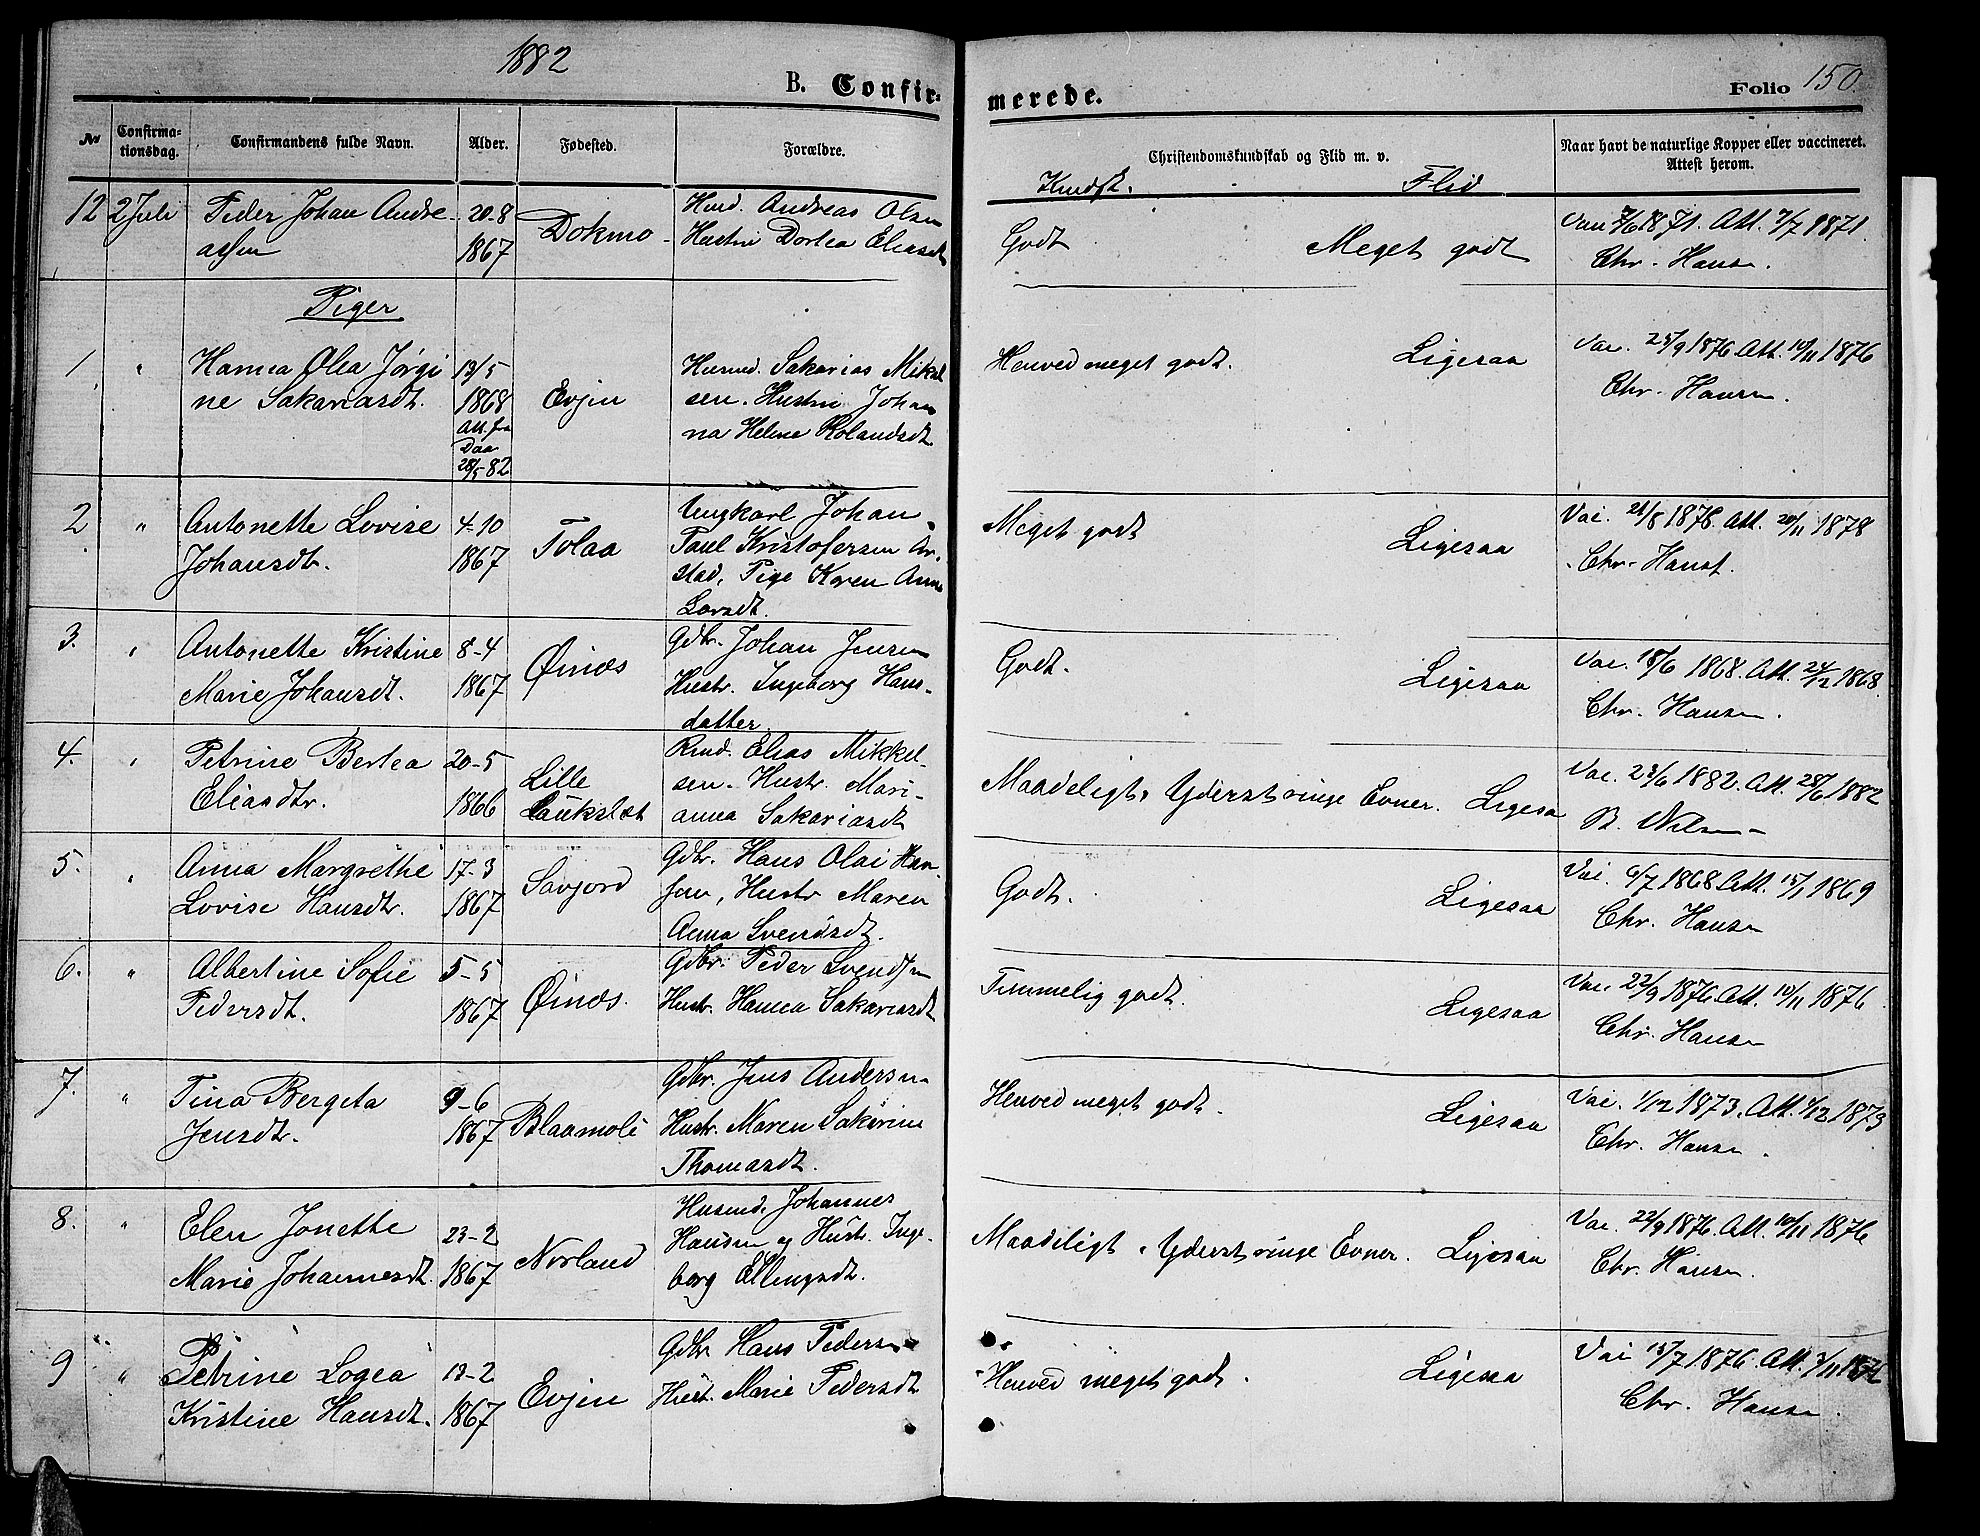 1882
B. Confir-
merede.
Folio 150
№ Confirma-tionsdag. Confirmandens fulde Navn. Alder. Fødested. Forældre. Christendomskundskab og Flid m. v. Naar havt de naturlige Kopper eller vaccineret. Attest herom.
Kundsk. Flid
12 2 Juli Peder Johan Andre- 20-8 Dokmo Husmd. Andreas Olsen Godt Meget godt Att. 7/7 1871.
assen 1867 Hustru Dortea Eliasdt Chr. Hansen.
Piger
1 " Hanna Olea Jørgi 13/5 Evjen Husmd. Sakarias Mikkel Henved meget godt. Ligesaa Vac. 25/9 1876 Att. 10/11 1876
ne Sakariasdt. 1868 sen. Hustru Johan Chr. Hansen.
Att. fra na Helene Rolandsdt.
Daa
28/5-82
2 " Antonette Lovise 4-10 Tolaa Ungkarl Johan Meget godt Ligesaa Vac. 21/8 1878. Att. 20/11 1878
Johansdtr. 1867 Paul Kristofersen Chr. Hans.
stad, Pige Karen Anna
Larsdt.
3. " Antonette Kristine 8-4 Øinæs Gdbr. Johan Jensen Godt. Ligesaa Vac. 18/6 1868. Att. 24/12 1868.
Marie Johansdt. 1867 Hustr. Ingeborg Hans- Chr. Hansen.
datter
4. " Petrine Bertea 20-5 Lille Elias Mikkel- Maadeligt. Yderst ringe Evner. Ligesa Vac. 23/6 1882. Att. 28/6 1882
Eliasdtr. 1866 Laukslæt sen. Hustr. Mari- B. Nilsen
anna Sakariasdt
5. " Anna Margrethe 17-3 Savjord Gdbr. Hans Olai Han- Godt. Ligesaa Vac. 6/7 1868. Att. 15/1 1869
Lovise Hansdtr. 1867 sen, Hustr Maren Chr. Hansen
Anna Svendsdt.
6. " Albertine Sofie 5-5 Øinæs. Gdbr. Peder Svendsen Temmelig godt. Ligesaa Vac. 22/9 1876. Att. 10/11 1876
Pedersdt. 1867 Hustr. Hanna Sakariasdt Chr. Hansen
7. " Tina Bergeta 9-6 Blaamoli Gdbr. Jens Andersen Henved meget godt. Ligesaa Vac. 1/12 1873. Att. 1/12 1873
Jensdtr. 1867 Hustr. Maren Sakarine Chr. Hansen.
Thomasdt.
8. " Elen Jonette 23-2 Norland Husmd. Johannes Maadeligt. Yderst ringe Evner. Ligesaa Vac. 22/9 1876. Att. 10/11 1876
Marie Johannesdt. 1867 Hansen og Hustr. Inge- Chr. Hansen.
borg Ellingsdt.
9 " Petrine Logea 12-2 Evjen Gdbr Hans Pedersen Henved meget godt. Ligesaa Vac 15/7 1876. Att.
Kristine Hansdt. 1867 Hustr. Marie Pedersdt Chr. Hansen.